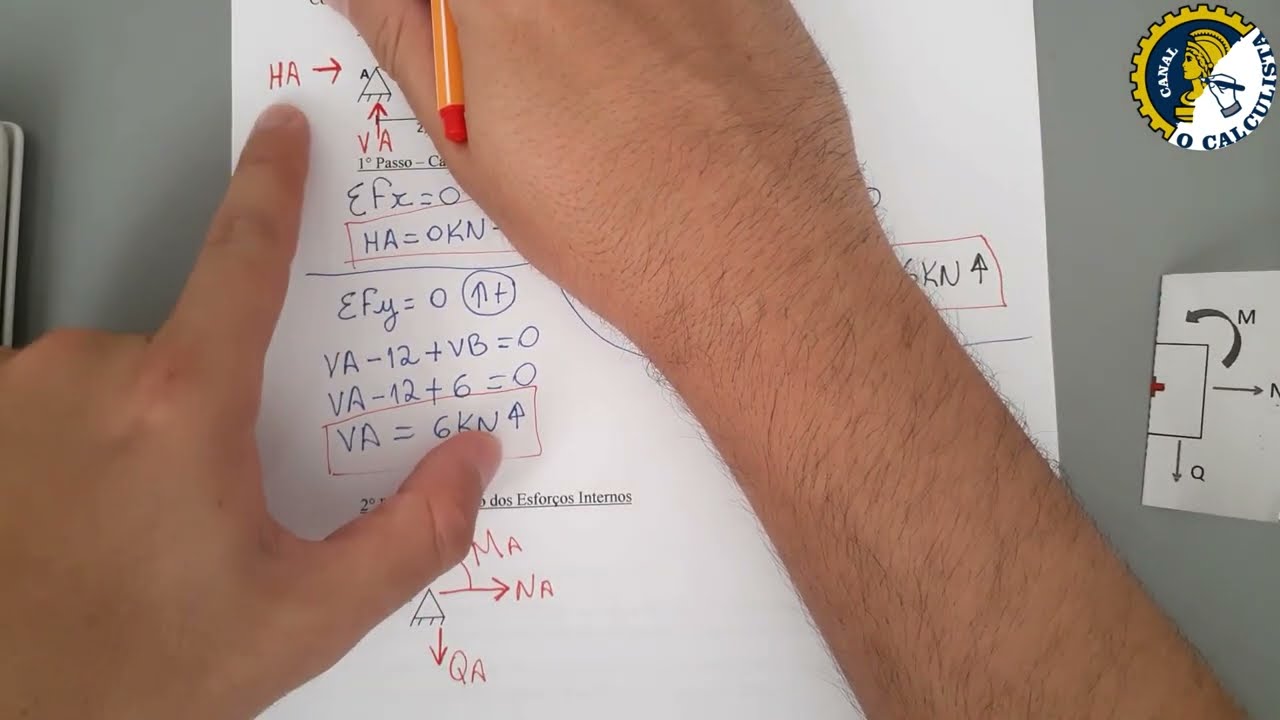 HA →
A
VA
1º Passo –
ΣFx = 0
HA = 0KN
6KN ↑
ΣFy = 0 ↑+
VA - 12 + VB = 0
VA - 12 + 6 = 0
VA = 6KN ↑
2º
dos Esforços Internos
MA
NA
QA
M
N
Q
CANAL
O CALCULISTA